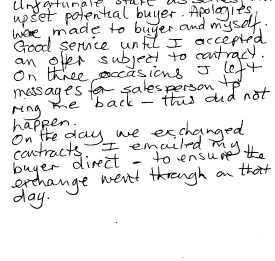 Unfortunate start as
upset potential buyer. Apologies
were made to buyer and myself.
Good service until I accepted
an offer subject to contract.
On three occasions I left
messages for salesperson to
ring me back - this did not
happen.
On the day we exchanged
contracts I emailed my
buyer direct - to ensure the
exchange went through on that
day.